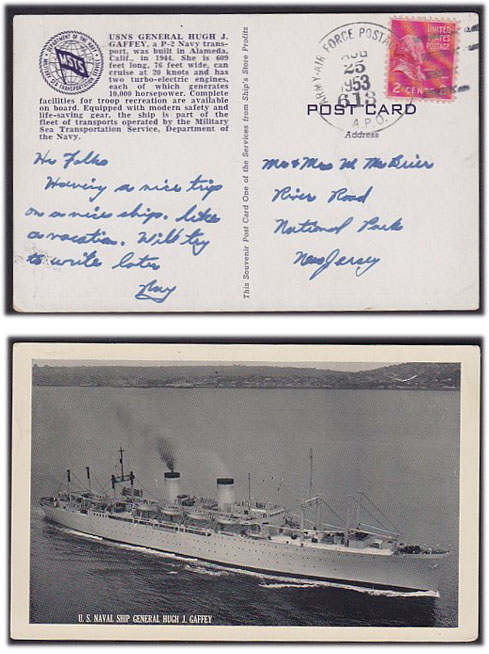 USNS GENERAL HUGH J.
GAFFEY, a P-2 Navy trans-
port, was built in Alameda,
Calif., in 1944. She is 609
feet long, 76 feet wide, can
cruise at 20 knots and has
two turbo-electric engines,
each of which generates
10,000 horsepower. Complete
facilities for troop recreation are available
on board. Equipped with modern safety and
life-saving gear, the ship is part of the
fleet of transports operated by the Military
Sea Transportation Service, Department of
the Navy.
MSTS
Hi Folks
Having a nice trip
on a nice ship. like
a vacation. Will try
to write later
Ray
This Souvenir Post Card One of the Services from Ship's Store Profits
ARMY-AIR FORCE POSTAL
AUG
25
1953
613
A.P.O.
UNITED
STATES
POSTAGE
2 CENTS
POST CARD
Address
Mr & Mrs M McBrier
River Road
National Park
New Jersey
U. S. NAVAL SHIP GENERAL HUGH J. GAFFEY